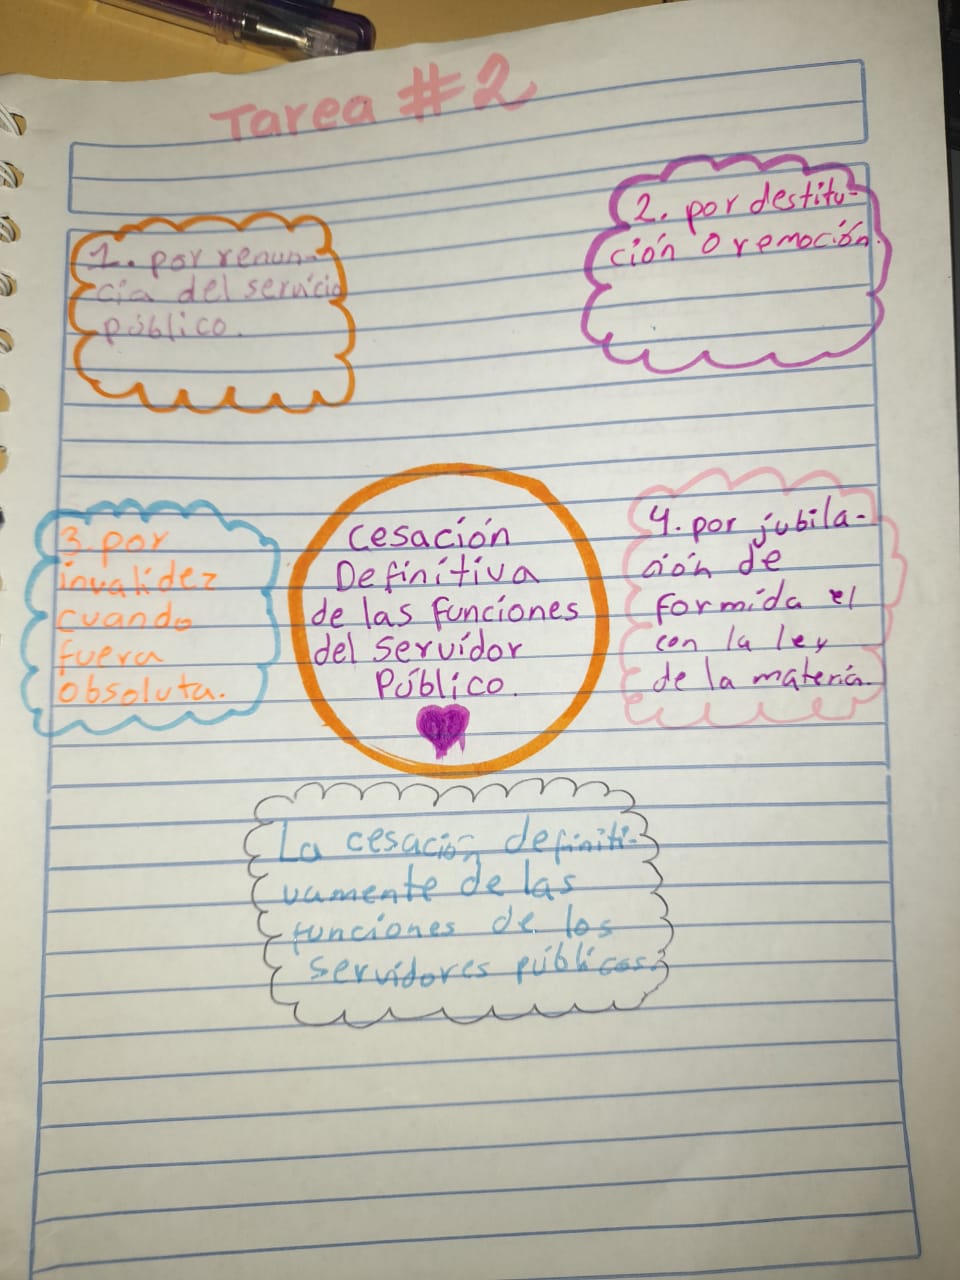 Tarea #2
1. por renun-
cia del servicio
público.
2. por destitu-
ción o remoción.
3. por
invalidez
cuando
fuera
obsoluta.
Cesación
Definitiva
de las funciones
del servidor
Público.
4. por jubila-
ción de
formida el
con la ley
de la materia.
La cesación definiti-
vamente de las
funciones de los
servidores públicos.